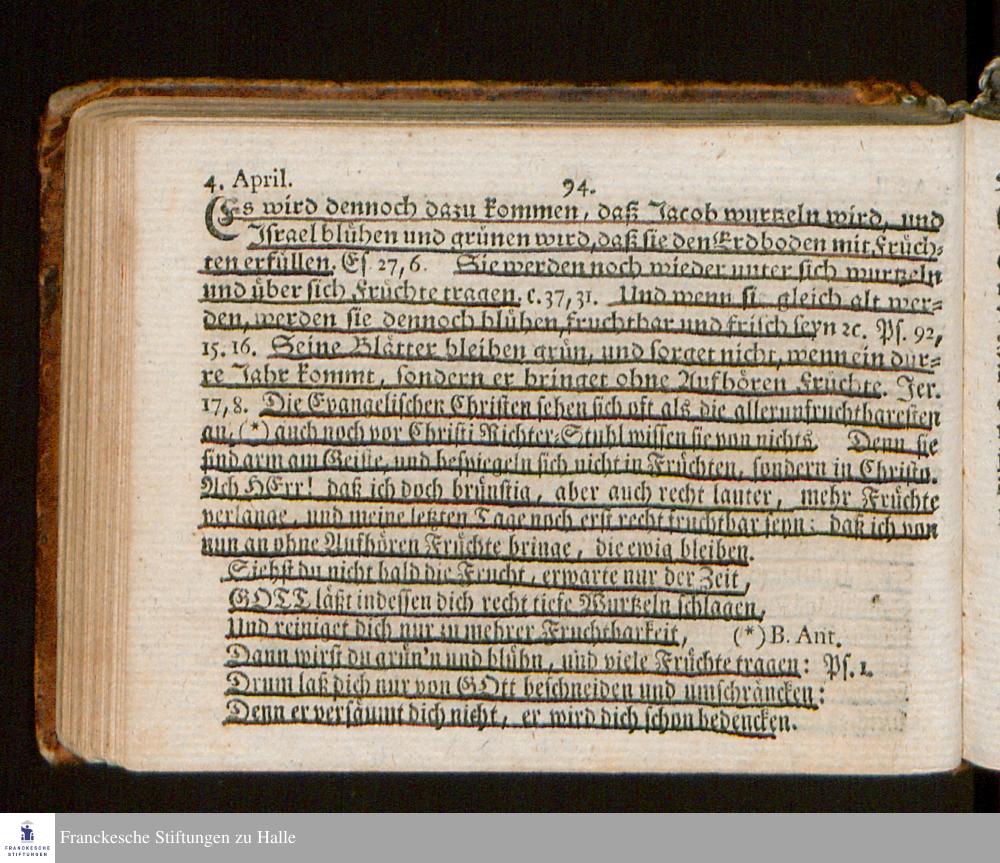 4. April. 94.
Es wird dennoch dazu kommen, daß Jacob wurtzeln wird, und
Israel blühen und grünen wird, daß sie den Erdboden mit Früch-
ten erfüllen. Es. 27, 6. Sie werden noch wieder unter sich wurtzeln
und über sich Früchte tragen. c. 37, 31. Und wenn si gleich alt wer-
den, werden sie dennoch blühen, fruchtbar und frisch seyn ꝛc. Ps. 92,
15. 16. Seine Blätter bleiben grün, und sorget nicht, wenn ein dür-
re Jahr kommt, sondern er bringet ohne Aufhören Früchte. Jer.
17, 8. Die Evangelischen Christen sehen sich oft als die allerunfruchtbaresten
an, (*) auch noch vor Christi Richter-Stuhl wissen sie von nichts. Denn sie
sind arm am Geiste, und bespiegeln sich nicht in Früchten, sondern in Christo.
Ach HErr! daß ich doch brünstig, aber auch recht lauter, mehr Früchte
verlange, und meine letzten Tage noch erst recht fruchtbar seyn: daß ich von
nun an ohne Aufhören Früchte bringe, die ewig bleiben.
Siehst du nicht bald die Frucht, erwarte nur der Zeit,
GOTT läßt indessen dich recht tiefe Wurtzeln schlagen,
Und reiniget dich nur zu mehrer Fruchtbarkeit, (*) B. Ant.
Dann wirst du grün'n und blühn, und viele Früchte tragen: Ps. 1.
Drum laß dich nur von GOtt beschneiden und umschräncken:
Denn er versäumt dich nicht, er wird dich schon bedencken.
FRANCKESCHE
STIFTUNGEN
Franckesche Stiftungen zu Halle